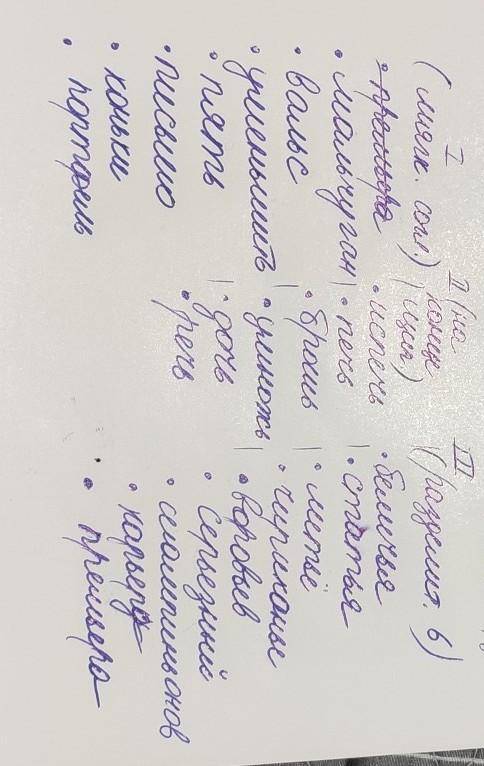 I
(мягк. согл.)
• премьера
• мальчуган
• вальс
• уменьшить
• пять
• письмо
• коньки
• портфель
II (на
конце
шип)
• испечь
• печь
• брошь
• умножь
• дочь
• речь
III
(разделит. ь)
• беличья
• статья
• литьё
• чириканье
• воробьев
• серьезный
• шампиньонов
• карьер
• премьера